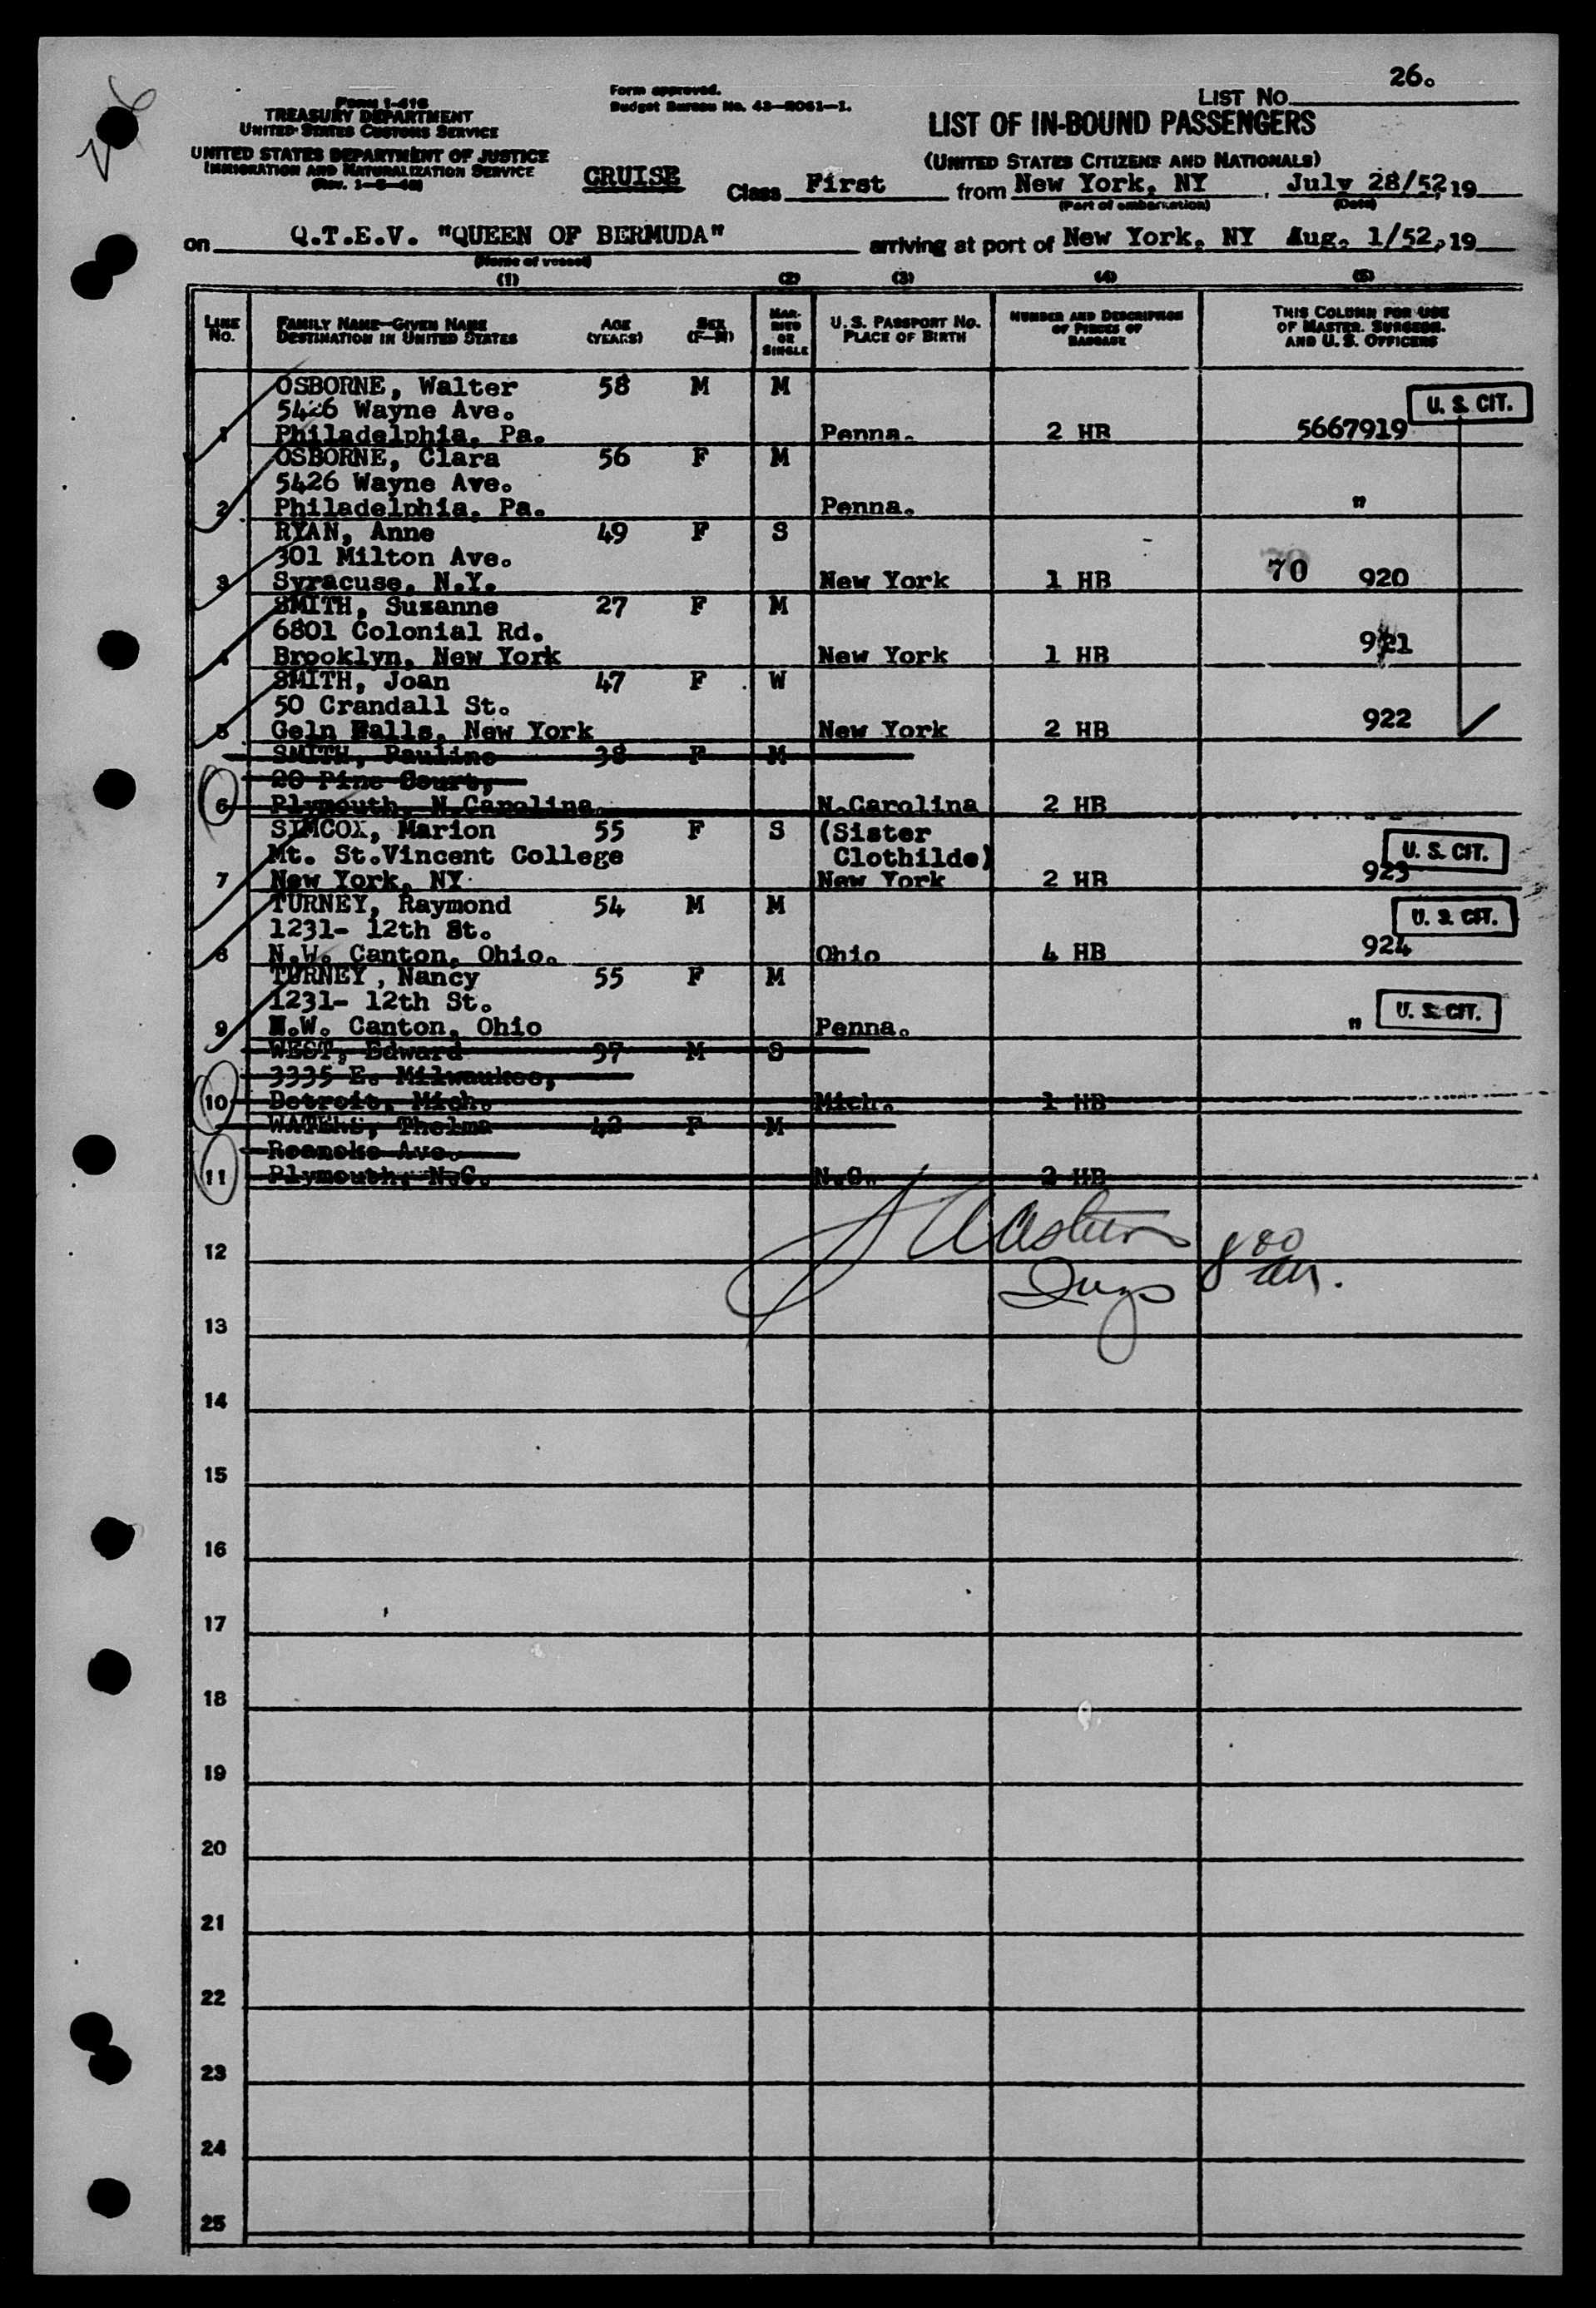 26.
Form I-416
TREASURY DEPARTMENT
UNITED STATES CUSTOMS SERVICE
UNITED STATES DEPARTMENT OF JUSTICE
IMMIGRATION AND NATURALIZATION SERVICE
Form approved.
Budget Bureau No. 43—R061—1.
LIST NO.
LIST OF IN-BOUND PASSENGERS
(UNITED STATES CITIZENS AND NATIONALS)
CRUISE Class First from New York, NY July 28/52,19
(Port of embarkation) (Date)
on Q.T.E.V. "QUEEN OF BERMUDA" arriving at port of New York, NY Aug. 1/52,19
(Name of vessel)
(1) (2) (3) (4) (5)
LINE NO. FAMILY NAME—GIVEN NAME DESTINATION IN UNITED STATES AGE (YEARS) SEX (F—M) MARRIED OR SINGLE U. S. PASSPORT NO. PLACE OF BIRTH NUMBER AND DESCRIPTION OF PIECES OF BAGGAGE THIS COLUMN FOR USE OF MASTER, SURGEON, AND U. S. OFFICERS
OSBORNE, Walter 58 M M
5426 Wayne Ave. U. S. CIT.
1 Philadelphia, Pa. Penna. 2 HB 5667919
OSBORNE, Clara 56 F M
5426 Wayne Ave.
2 Philadelphia, Pa. Penna. "
RYAN, Anne 49 F S
301 Milton Ave.
3 Syracuse, N.Y. New York 1 HB 70 920
SMITH, Suzanne 27 F M
6801 Colonial Rd.
4 Brooklyn, New York New York 1 HB 921
SMITH, Joan 47 F W
50 Crandall St.
5 Geln Falls, New York New York 2 HB 922
SMITH, Pauline 38 F M
20 Pine Court,
6 Plymouth, N.Carolina N.Carolina 2 HB
SIMCOX, Marion 55 F S (Sister
Mt. St.Vincent College Clothilde) U. S. CIT.
7 New York, NY New York 2 HB 923
TURNEY, Raymond 54 M M
1231- 12th St. U. S. CIT.
8 N.W. Canton, Ohio. Ohio 4 HB 924
TURNEY, Nancy 55 F M
1231- 12th St. U. S. CIT.
9 N.W. Canton, Ohio Penna. "
WEST, Edward 37 M S
3335 E. Milwaukee,
10 Detroit, Mich. Mich. 1 HB
WATERS, Thelma 42 F M
Roanoke Ave.
11 Plymouth, N.C. N.C. 2 HB
12
13
14
15
16
17
18
19
20
21
22
23
24
25